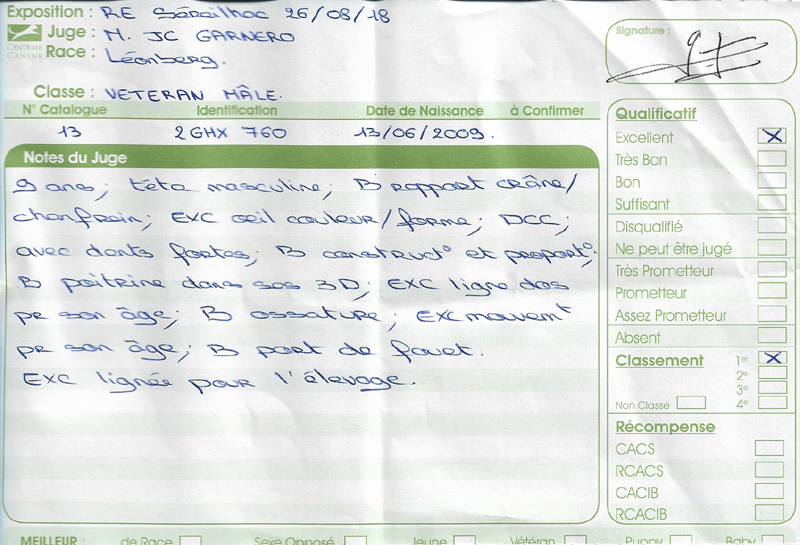 Exposition : RE Séreilhac 26/08/18
Juge : M. JC GARNERO
CENTRALE CANINE
Race : Léonberg.
Classe : VETERAN MÂLE.
Signature :
N° Catalogue Identification Date de Naissance à Confirmer
13 2GHX 760 13/06/2009.
Notes du Juge
9 ans; tête masculine; B rapport crâne/
chanfrein; EXC oeil couleur/forme; DCC;
avec dents fortes; B construct° et proport°;
B poitrine dans ses 3D; EXC ligne dos
pr son âge; B ossature; EXC mouvemt
pr son âge; B port de fouet.
EXC lignée pour l'élevage.
Qualificatif
Excellent X
Très Bon
Bon
Suffisant
Disqualifié
Ne peut être jugé
Très Prometteur
Prometteur
Assez Prometteur
Absent
Classement 1er X
2e
3e
Non Classé 4e
Récompense
CACS
RCACS
CACIB
RCACIB
MEILLEUR : de Race Sexe Opposé Jeune Vétéran Puppy Baby